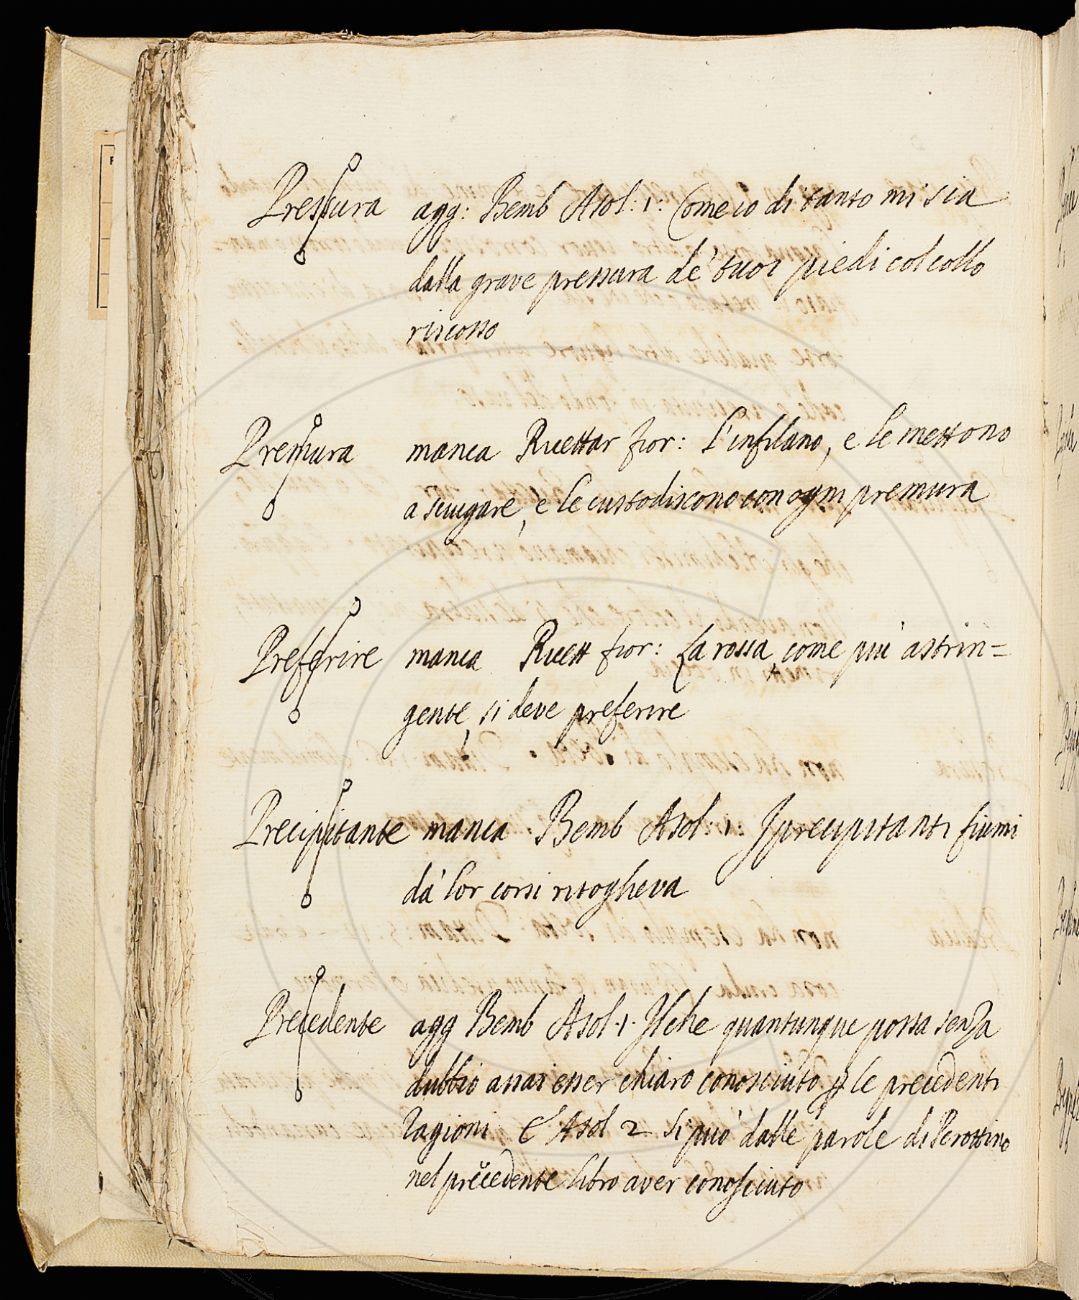 Pressura agg: Bemb Asol: 1. Come io di tanto mi sia
dalla grave pressura de' tuoi piedi col collo
riscosso
Premura manca Ricettar fior: L'infilano, e le mettono
a sciugare, e le custodiscono con ogni premura
Preferire manca Ricett fior: La rossa, come più astrin=
gente, si deve preferire
Precipitante manca Bemb Asol: 1. I precipitanti fiumi
da' lor corsi ritoglieva
Precedente agg Bemb Asol 1. Il che quantunque possa senza
dubbio assai esser chiaro conosciuto p le precedenti
ragioni. E Asol 2 si può dalle parole di Perottino
nel precedente libro aver conosciuto